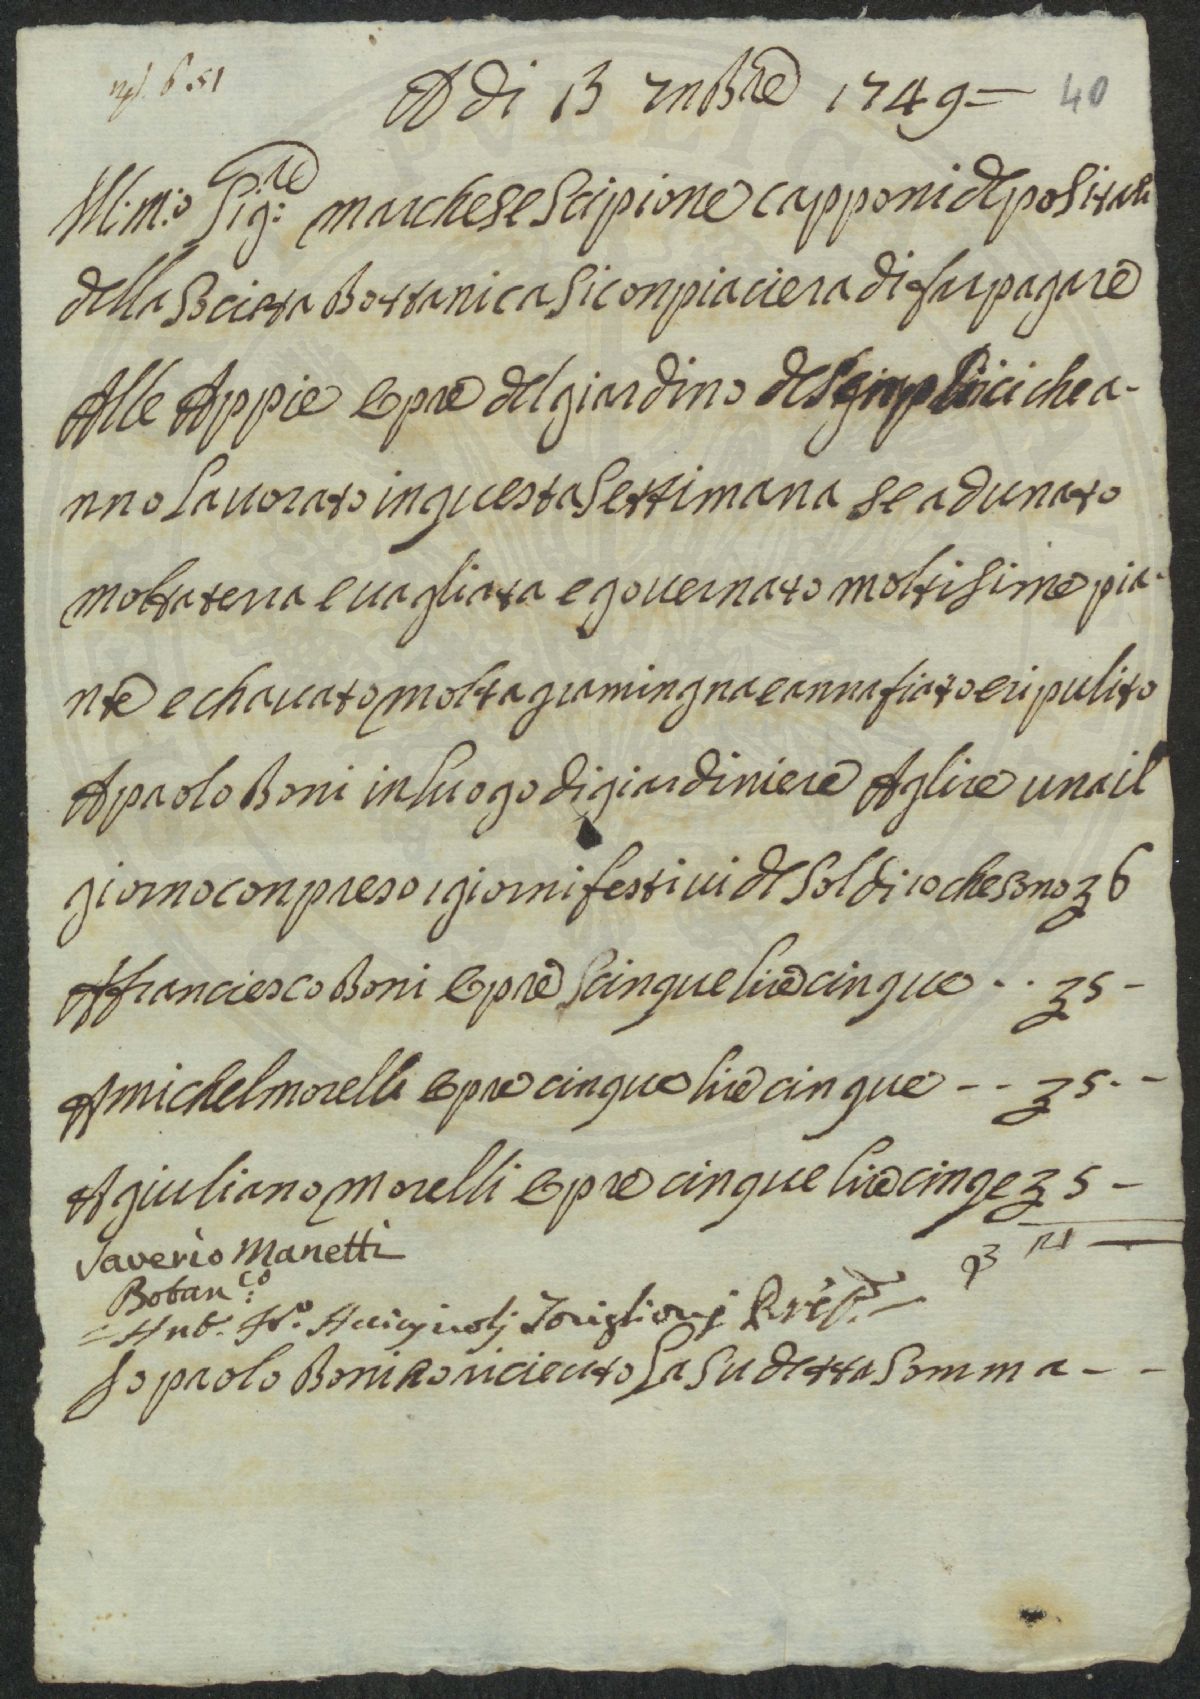 A di 13 7nbre 1749 = 40
Ill:m:o Sig:re marchese Scipione capponi depositari
della Societa Bottanica Si conpiaciera di far pagare
Alle Appie Opre del giardino de Senplici che a-
nno Lauorato in questa Settimana se adunato
molta terra e uagliata e gouernato moltisime pia-
nte e chauato molta gramingna e annafiato e ripulito
A paolo Boni in Luogo di giardiniere A glire una il
giorno conpreso i giorni festiui de Soldi 10 che sono 6
A franciesco Boni Opre cinque lire cinque - - 5 -
A michel morelli Opre cinque lire cinque - - 5 - -
A giuliano morelli Opre cinque lire cinqe 5 -
21
Saverio Manetti
Botan:co
= Ant. Fr.o Acciajuolj Toriglionj
Jo paolo Boni o riceuto La Sudetta Somma - -